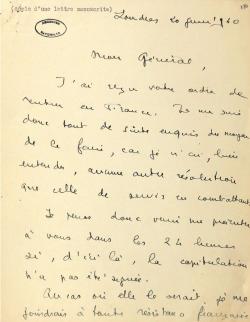 (Copie d'une lettre manuscrite)
Londres 20 juin 1940
Mon Général,
J'ai reçu votre ordre de
rentrer en France. Je me suis
donc tout de suite enquis du moyen
de le faire, car je n'ai, bien
entendu, aucune autre résolution
que celle de servir en combattant
Je pense donc venir me présenter
à vous dans les 24 heures
si, d'ici là, la capitulation
n'a pas été signée.
Au cas où elle le serait je me
joindrais à toute résistance française